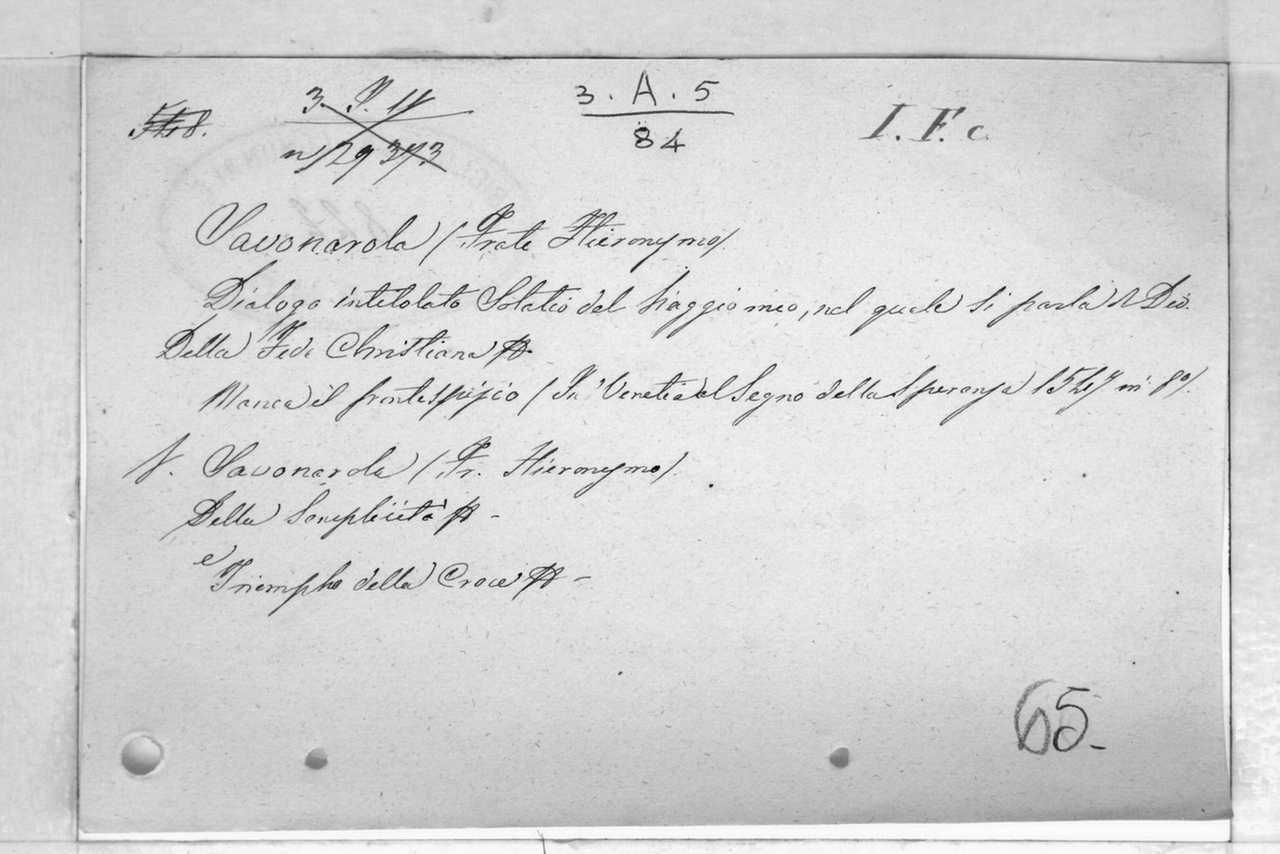 3. A. 5
84
I. F. c.
Savonarola (Frate Hieronymo)
Dialogo intitolato Solatio del Viaggio mio, nel quale si parla di Dio.
Della Fede Christiana
Manca il frontespizio (In Venetia al Segno della Speranza 1547 in 8º).
V. Savonarola (Fr. Hieronymo)
Della Semplicità
e
Triompho della Croce
65.